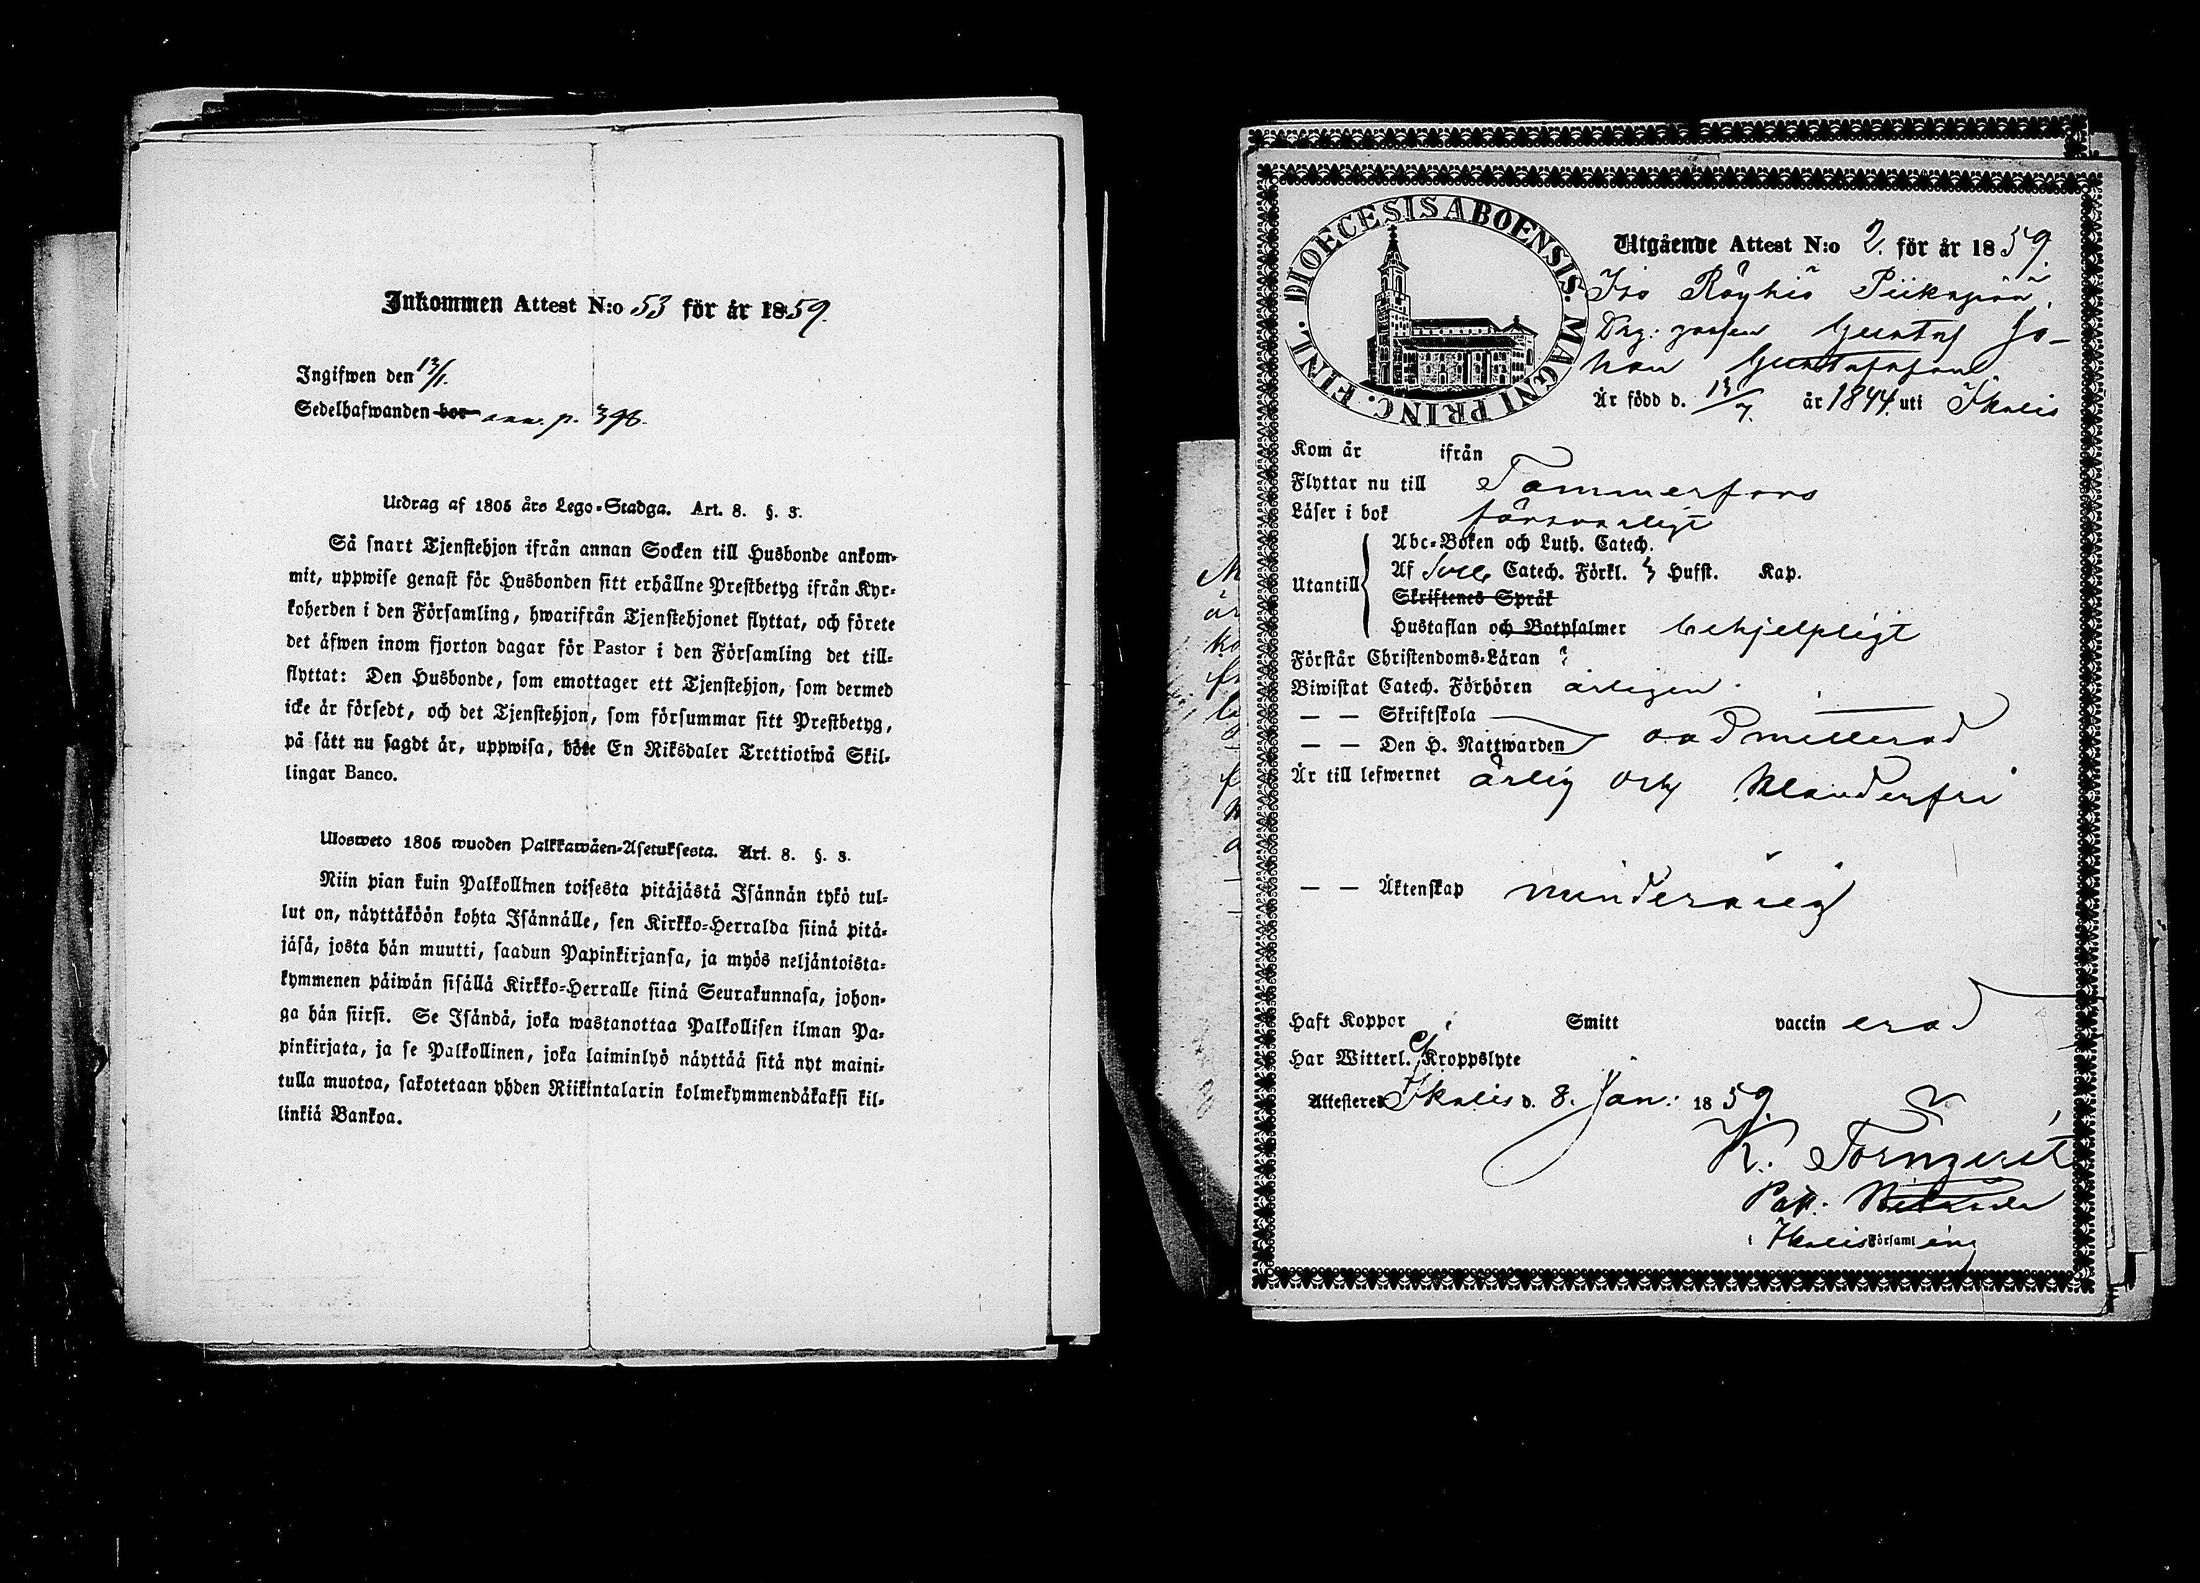 Inkommen Attest N:o 53 för år 1859.
Ingifwen den 13/1.
Sedelhafwanden bor ann. p. 398.
Utdrag af 1805 års Lego-Stadga. Art. 8. §. 3.
Så snart Tjenstehjon ifrån annan Socken till Husbonde ankom-
mit, uppwise genast för Husbonden sitt erhållne Prestbetyg ifrån Kyr-
koherden i den Församling, hwarifrån Tjenstehjonet flyttat, och förete
det äfwen inom fjorton dagar för Pastor i den Församling det till-
flyttat: Den Husbonde, som emottager ett Tjenstehjon, som dermed
icke är försedt, och det Tjenstehjon, som försummar sitt Prestbetyg,
på sätt nu sagdt är, uppwisa, böte En Riksdaler Trettiotwå Skil-
lingar Banco.
Ulosweto 1805 wuoden Palkkawäen-Asetuksesta. Art. 8. §. 3.
Niin pian kuin Palkollinen toisesta pitäjästä Isännän tykö tul-
lut on, näyttäköön kohta Isännälle, sen Kirkko-Herralda siinä pitä-
jäsä, josta hän muutti, saadun Papinkirjansa, ja myös neljäntoista-
kymmenen päiwän sisällä Kirkko-Herralle siinä Seurakunnasa, johon-
ga hän siirsi. Se Isändä, joka wastanottaa Palkollisen ilman Pa-
pinkirjata, ja se Palkollinen, joka laiminlyö näyttää sitä nyt maini-
tulla muotoa, sakotetaan yhden Riikintalarin kolmekymmendäkaksi kil-
linkiä Bankoa.
DIOECESIS ABOENSIS. MAGNI PRINC. FINL.
Utgående Attest N:o 2. för år 1859.
Iso Röyhiö
Gustaf Jo-
han Gustafsson
Är född d. 13/7. år 1844. uti Ikalis
Kom år ifrån
Flyttar nu till Tammerfors
Läser i bok försvarligt
Abc-Boken och Luth. Catech.
Utantill Af Catech. Förkl. 3 Hufst. Kap.
Skriftenes Språk
Hustaflan och Botpsalmer behjelpligt
Förstår Christendoms-Läran
Biwistat Catech. Förhören årligen
— — Skriftskola
— — Den H. Nattwarden oadmitterad
Är till lefwernet ärlig och klanderfri
— — Äktenskap minderårig
Haft Koppor Smitt vaccinerad
Har Witterl. ej Kroppslyte
Attesteres Ikalis d. 8. Jan: 1859.
K. Törnqvist
Past.
i Ikalis Församling